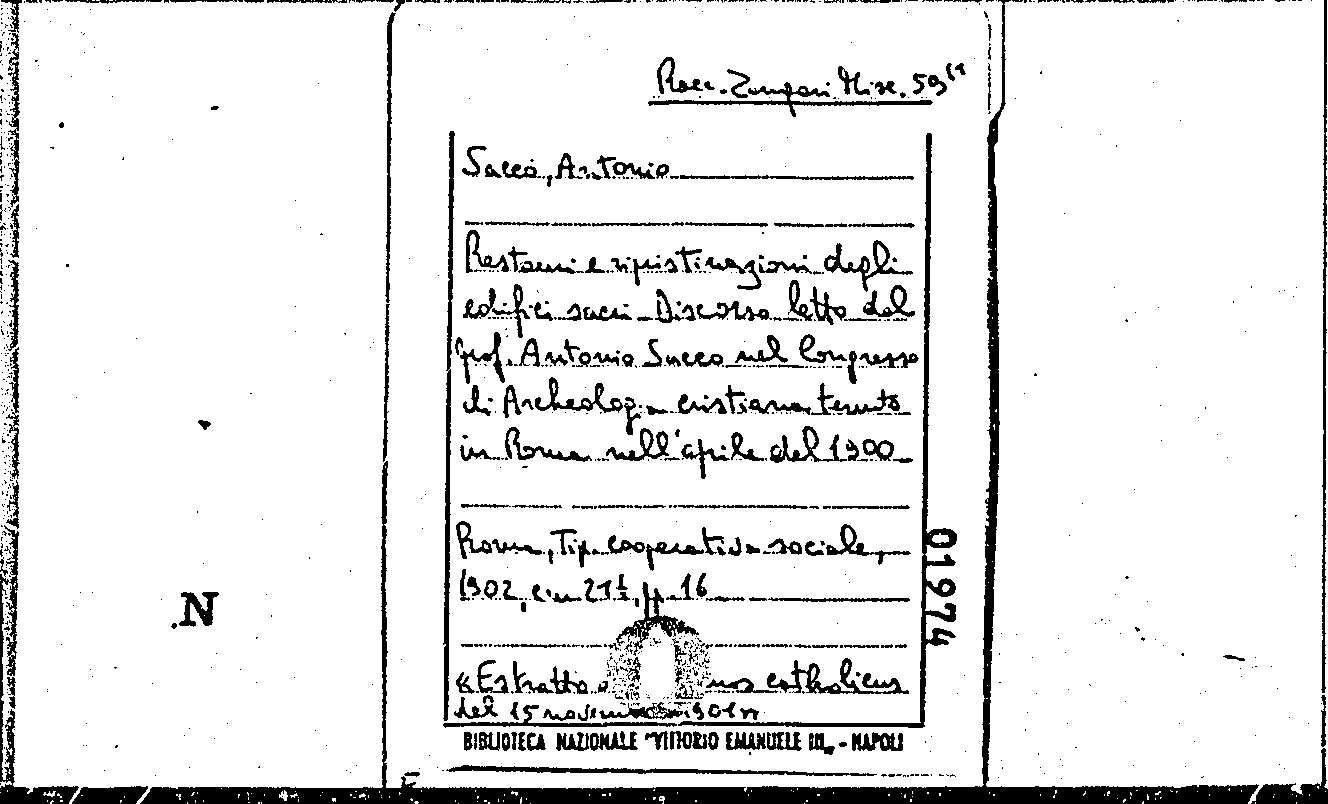 Racc. Zangari Misc. 59
Sacco, Antonio
Restauri e ripristinazioni degli
edifici sacri - Discorso letto dal
prof. Antonio Sacco nel Congresso
di Archeologia cristiana tenuto
in Roma nell'aprile del 1900
Roma, Tip. cooperativa sociale,
1902, cm 21½, pp. 16
«Estratto catholicus
del 15 1901»
BIBLIOTECA NAZIONALE "VITTORIO EMANUELE III„ - NAPOLI
01974
N